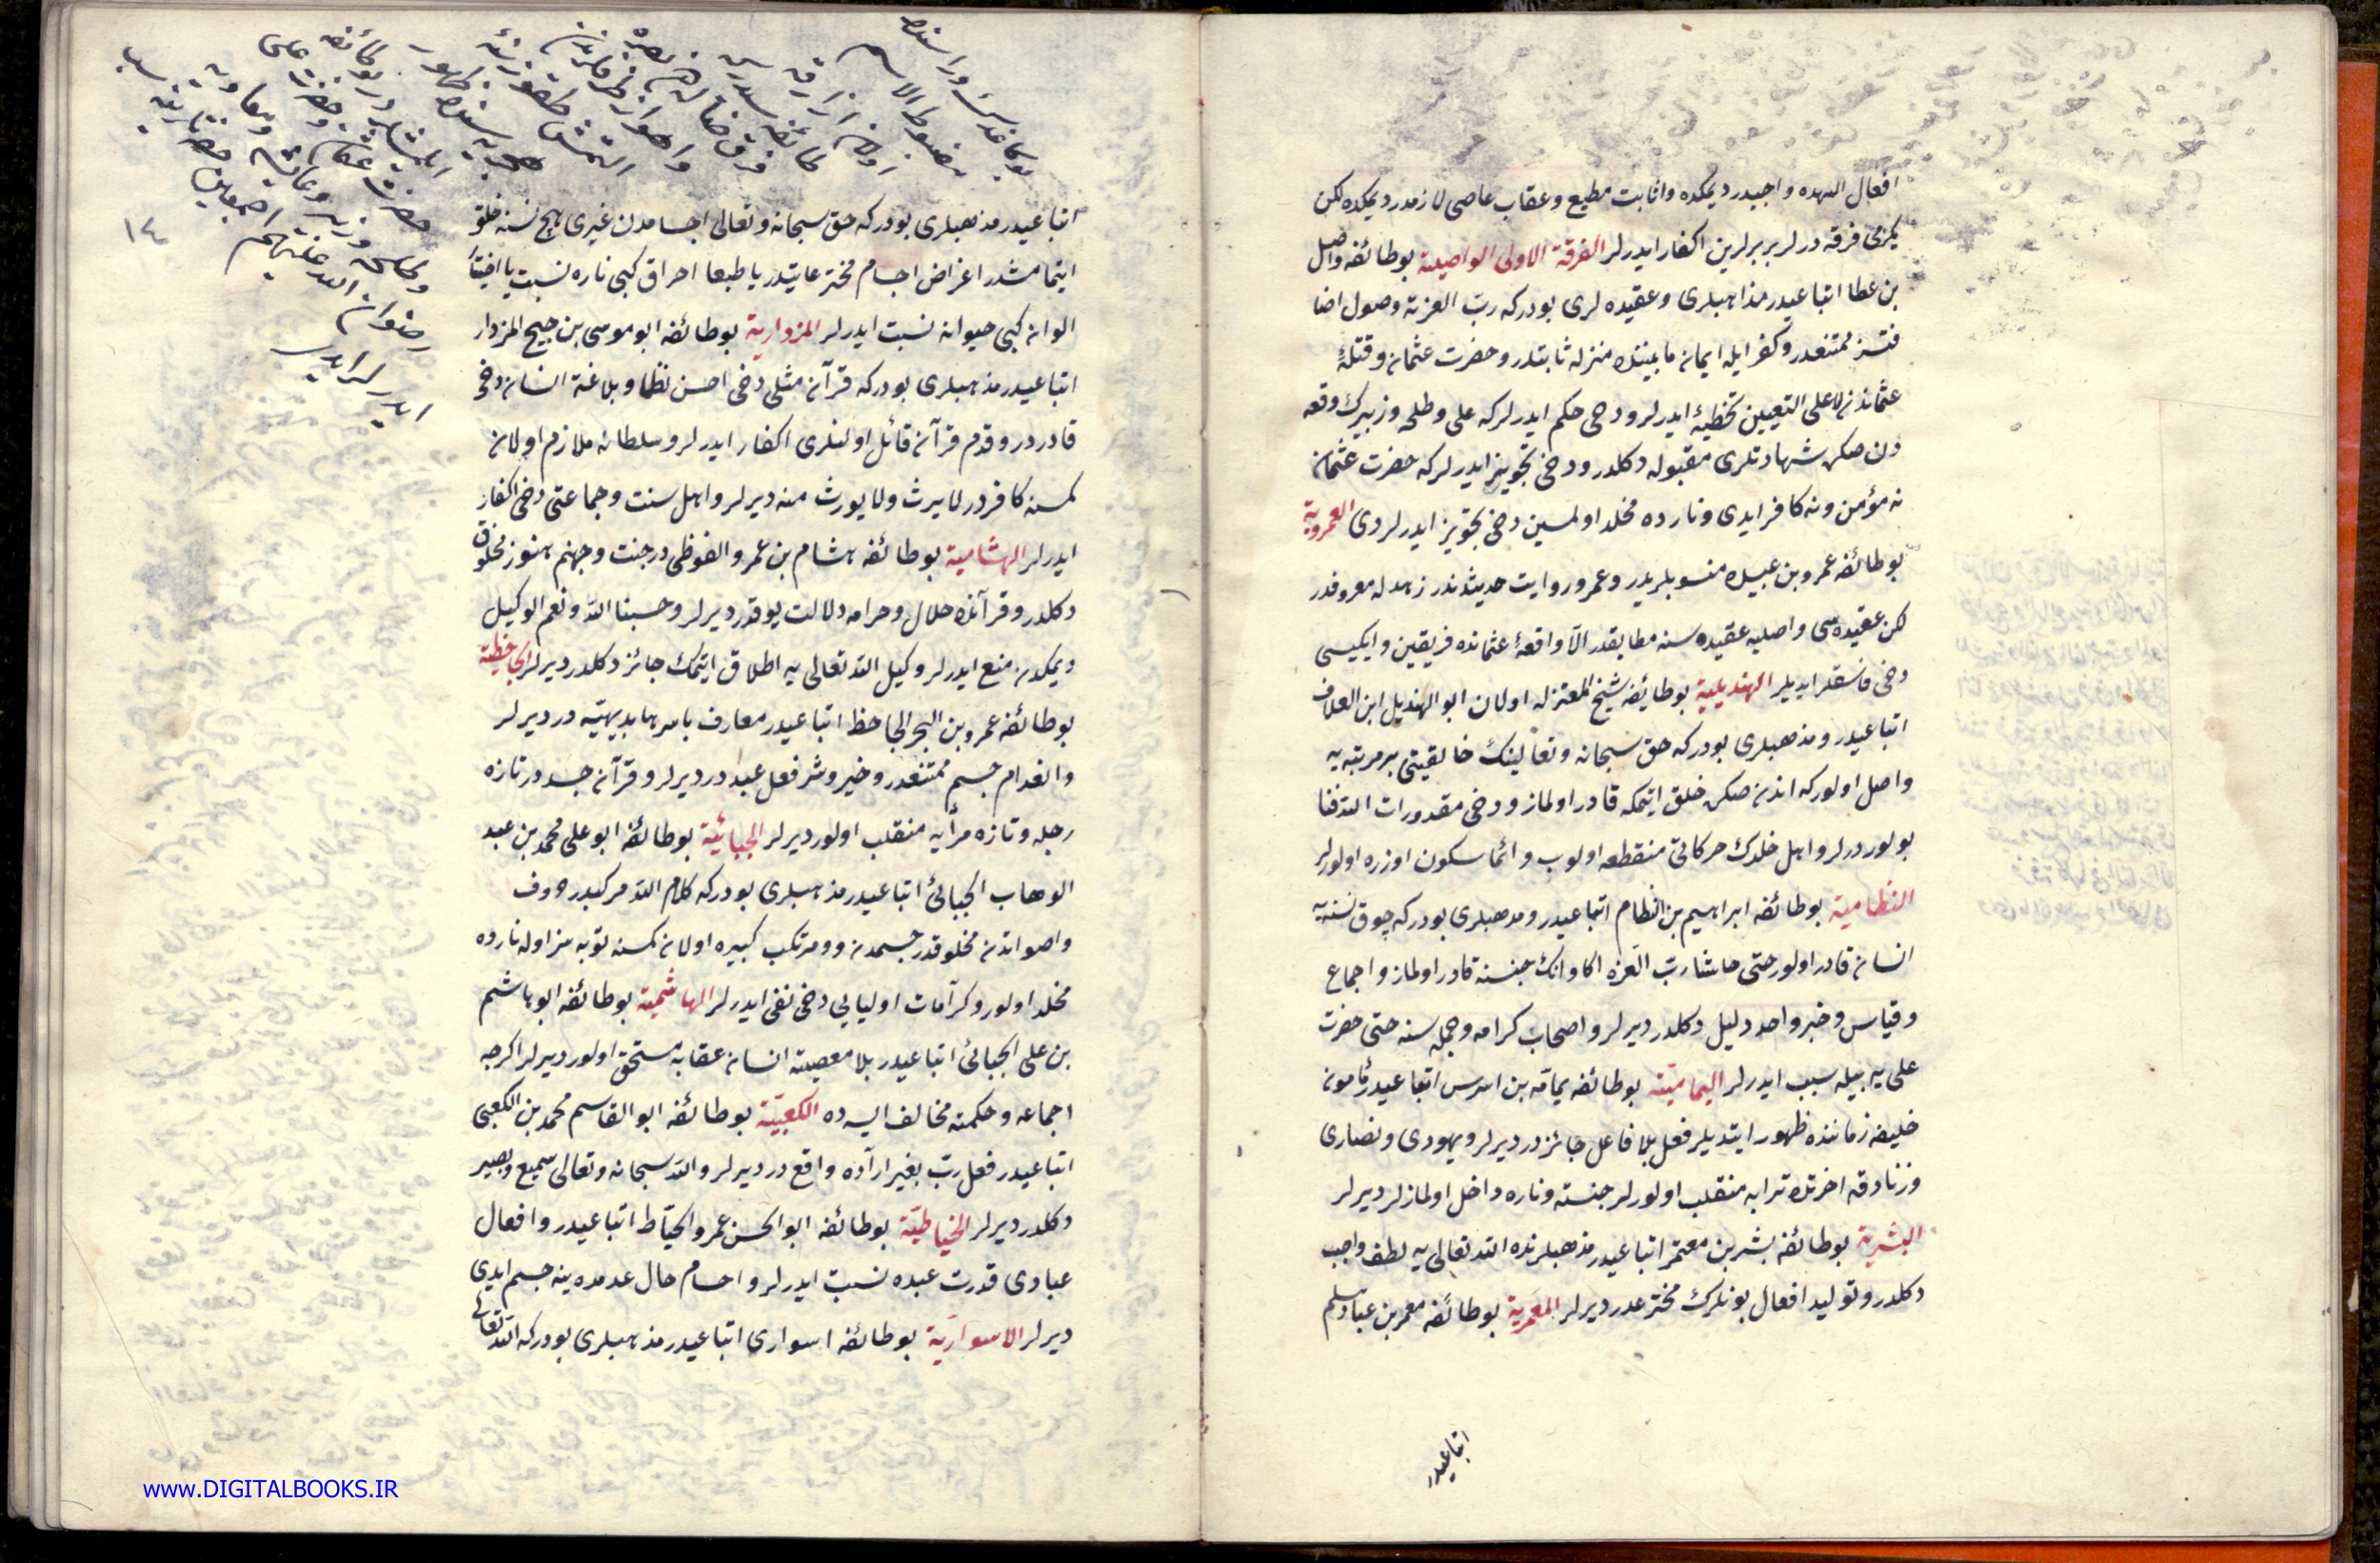 افعال اللهده واجبدر ديمكده واثابت مطيع وعقاب عاصى لازمدر ديمكده لكن
يكرمى فرقه درلر بربرلرين اكفار ايدرلر الفرقة الاولى الواصلية بوطائفه واصل
بن عطا اتباعيدر مذاهبلرى وعقيده لرى بودركه رب العزته وصول اضا
فتسز ممتنعدر وكفر ايله ايمان مابيننده منزله ثابتدر وحضرت عثمان وقتلهٔ
عثماندن لاعلى التعيين تخطيهٔ ايدرلر ودخى حكم ايدرلركه على وطلحه وزبيرك وقعه
دن صكره شهادتلرى مقبوله دكلدر ودخى تجويز ايدرلركه حضرت عثمان
نه مؤمن ونه كافر ايدى ونارده مخلد اولمسين دخى تجويز ايدرلردى العمروية
بوطائفه عمرو بن عبيده منسوبلريدر وعمرو روايت حديثندن زهدله معروفدر
لكن عقيده سى واصليه عقيده سنه مطابقدر الّا واقعهٔ عثمانده فريقين وايكيسى
دخى فاسقلر ايديلر الهذيلية بوطايفه شيخ المعتزله اولان ابو الهذيل ابن العلاف
اتباعيدر ومذهبلرى بودركه حق سبحانه وتعالينك خالقيتى بر مرتبه يه
واصل اولوركه اندن صكره خلق ايتمكه قادر اولماز ودخى مقدورات الله فنا
بولور درلر واهل خلدك حركاتى منقطعه اولوب دائما سكون اوزره اولورلر
النظامية بوطائفه ابراهيم بن النظام اتباعيدر ومذهبلرى بودركه چوق نسنه يه
انسان قادر اولور حتى حاشا رب العزه اكا وانك جنسنه قادر اولماز واجماع
وقياس وخبر واحد دليل دكلدر ديرلر واصحاب كرامه وجمله سنه حتى حضرت
على يه بيله سب ايدرلر اليمامية بوطائفه يمامّه بن اسرس اتباعيدر مأمون
خليفه زماننده ظهور ايتديلر فعل بلا فاعل جائزدر ديرلر ويهودى ونصارى
وزنادقه اخرتده ترابه منقلب اولورلر جنته وناره داخل اولمازلر ديرلر
البشرية بوطائفه بشر بن معتمر اتباعيدر مذهبلرنده الله تعالى يه لطف واجب
دكلدر وتوليد افعال بونلرك مخترعدر ديرلر المعمرية بوطائفه معمر بن عباد سلم
اتباعيدر
اتباعيدر مذهبلرى بودركه حق سبحانه وتعالى اجسامدن غيرى هيچ نسنه خلق
ايتمامشدر اعراض اجسام مخترعاتيدر يا طبعا احراق كبى ناره نسبت يا اختيارا
الوان كبى حيوانه نسبت ايدرلر المزدارية بوطائفه ابو موسى بن صبيح المزدار
اتباعيدر مذهبلرى بودركه قرآن مثلى دخى احسن نظما وبلاغة انسان دخى
قادردر وقدم قرآن قائل اولنلرى اكفار ايدرلر وسلطانه ملازم اولان
كمسنه كافردر لا يرث ولا يورث منه ديرلر واهل سنت وجماعتى دخى اكفار
ايدرلر الهشامية بوطائفه هشام بن عمرو الفوظى درجنت وجهنم هنوز مخلوق
دكلدر وقرآنده حلال وحرامه دلالت يوقدر ديرلر وحسبنا الله ونعم الوكيل
ديمكدن منع ايدرلر وكيل الله تعالى يه اطلاق ايتمك جائز دكلدر ديرلر الجاحظية
بوطائفه عمرو بن البحر الجاحظ اتباعيدر معارف باسرها بديهيّه در ديرلر
وانعدام جسم ممتنعدر وخير وشر فعل عبددر ديرلر وقرآن جسددر تازه
رجله وتازه مرأيه منقلب اولور ديرلر الجبائية بوطائفه ابو على محمد بن عبد
الوهاب الجبائى اتباعيدر مذهبلرى بودركه كلام الله مركبدر حروف
واصواتدن مخلوقدر جسمدن ومرتكب كبيره اولان كمسنه توبه سز اوله نارده
مخلد اولور وكرامات اوليايى دخى نفى ايدرلر الهاشمية بوطائفه ابو هاشم
بن على الجبائى اتباعيدر بلا معصية انسان عقابه مستحق اولور ديرلر اكرچه
اجماعه وحكمته مخالف ايسه ده الكعبيّة بوطائفه ابو القاسم محمد بن الكعبى
اتباعيدر فعل رب بغير اراده واقع در ديرلر والله سبحانه وتعالى سميع وبصير
دكلدر ديرلر الخياطيّة بوطائفه ابو الحسن عمرو الخيّاط اتباعيدر وافعال
عبادى قدرت عبده نسبت ايدرلر واجسام حال عدمده ينه جسم ايدى
ديرلر الاسوارية بوطائفه اسوارى اتباعيدر مذهبلرى بودركه الله تعالى
حضرت عثمان وحضرت على
وطلحه وزبير وعايشه ومعاويه
رضوان الله عليهم اجمعين حضراتينه سب
ايدرلر ايدى
١٤
www.DIGITALBOOKS.IR